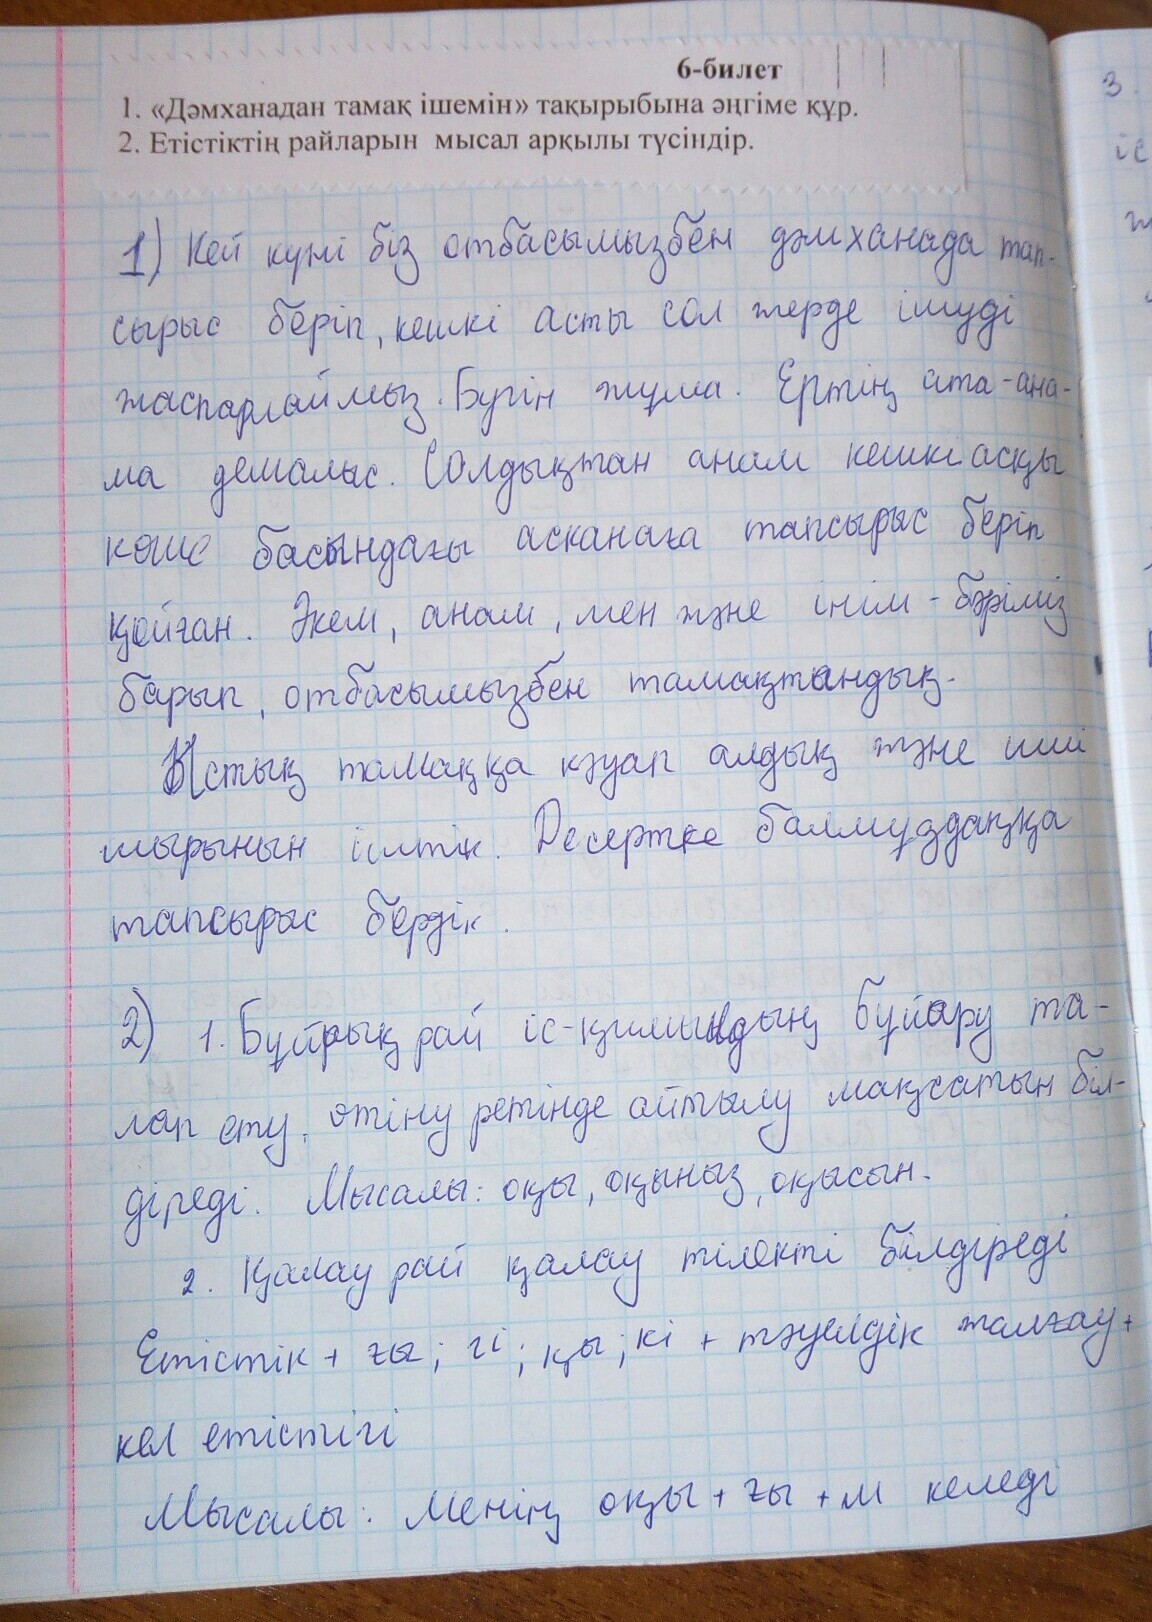 6-билет
1. «Дәмханадан тамақ ішемін» тақырыбына әңгіме құр.
2. Етістіктің райларын мысал арқылы түсіндір.
1) Кей күні біз отбасымызбен дәмханада тап-
сырыс беріп, кешкі асты сол жерде ішуді
жаспарлаймыз. Бүгін жұма. Ертең ата-ана-
ма демалыс. Солдықтан анам кешкі асқы
көше басындағы асханаға тапсырыс беріп
қойған. Әкем, анам, мен және інім - бәріміз
барып, отбасымызбен тамақтандық.
Ыстық тамаққа кәуап алдық және ішті
шырынын ішттік. Десертке балмұздаққа
тапсырыс бердік.
2) 1. Бұйрық рай іс-қимылдың бұйыру та-
лап ету, өтіну ретінде айтылу мақсатын біл-
діреді. Мысалы: оқы, оқыңыз, оқысын.
2. Қалау рай қалау тілекті білдіреді
Етістік + ғы; гі; қы; кі + тәуелдік жалғау +
кел етістігі
Мысалы: Менің оқы + ғы + м келеді
3.
іс